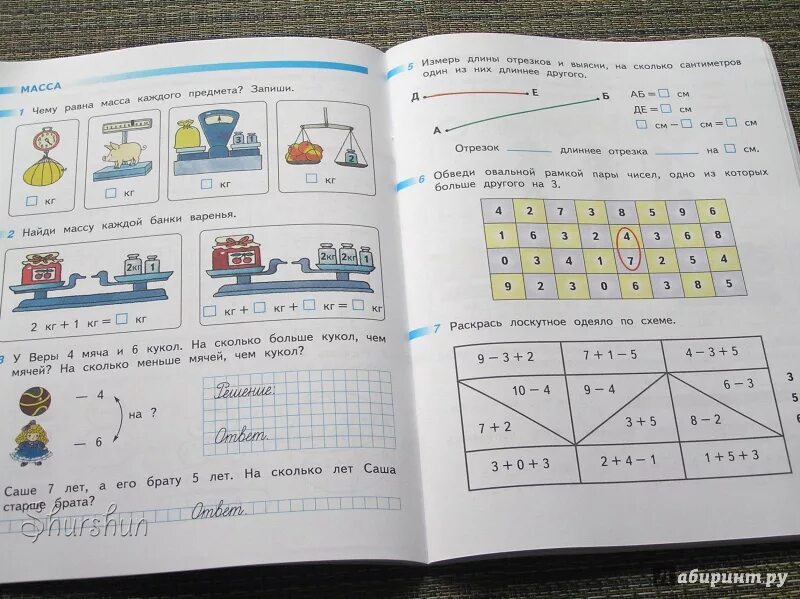 МАССА
1 Чему равна масса каждого предмета? Запиши.
3
2
кг
кг
кг
кг
2 Найди массу каждой банки варенья.
2кг 1
2кг 2кг 1
2 кг + 1 кг = кг
кг + кг + кг = кг
3 У Веры 4 мяча и 6 кукол. На сколько больше кукол, чем
мячей? На сколько меньше мячей, чем кукол?
— 4
на ?
— 6
Решение:
Ответ.
Саше 7 лет, а его брату 5 лет. На сколько лет Саша
старше брата?
Ответ.
Shurshun
5 Измерь длины отрезков и выясни, на сколько сантиметров
один из них длиннее другого.
Д Е
А Б
АБ = см
ДЕ = см
см − см = см
Отрезок длиннее отрезка на см.
6 Обведи овальной рамкой пары чисел, одно из которых
больше другого на 3.
4 2 7 3 8 5 9 6
1 6 3 2 4 3 6 8
0 3 4 1 7 2 5 4
9 2 3 0 6 3 8 0
7 Раскрась лоскутное одеяло по схеме.
9 − 3 + 2 7 + 1 − 5 4 − 3 + 5
10 − 4 9 − 4 6 − 3
7 + 2 3 + 5 8 − 2
3 + 0 + 3 2 + 4 − 1 1 + 5 + 3
3
5
6
Лабиринт.ру